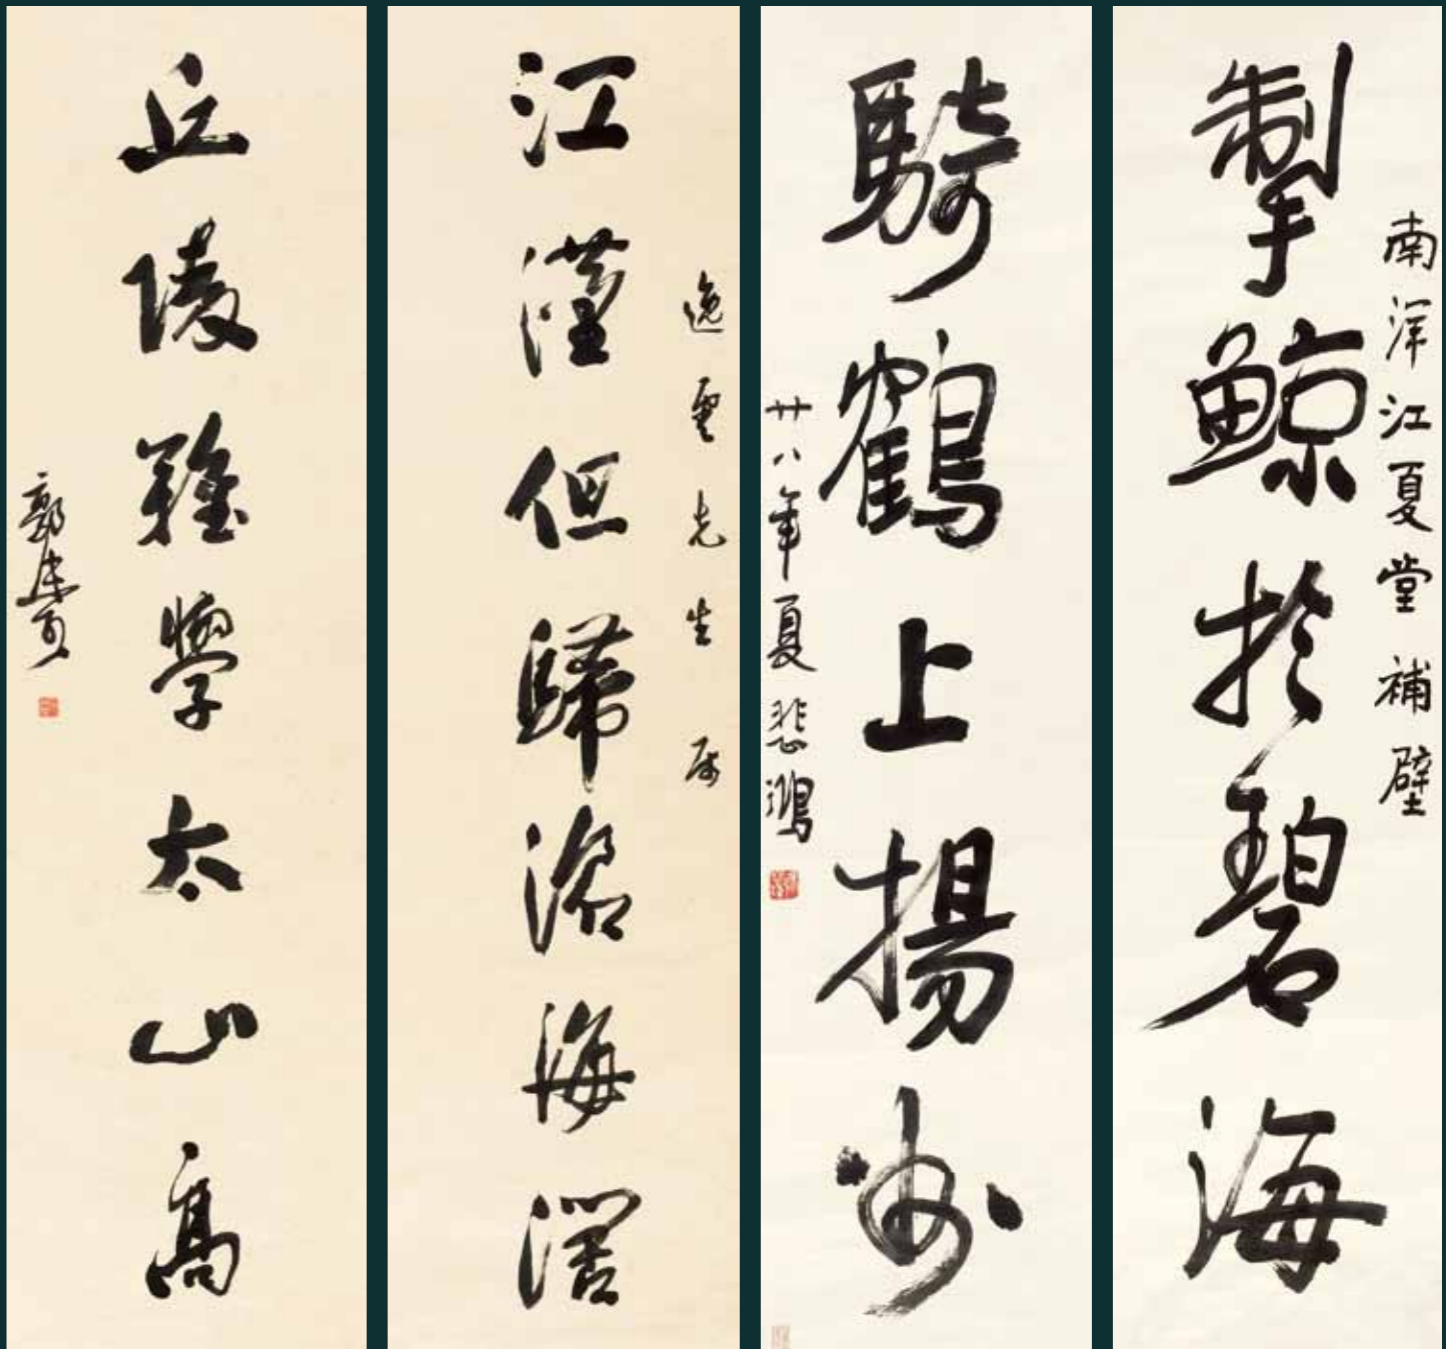 南洋江夏堂補壁
掣鯨於碧海
騎鶴上揚州
廿八年夏悲鴻
逸雲先生属
江漢但歸滄海濶
丘陵難學太山高